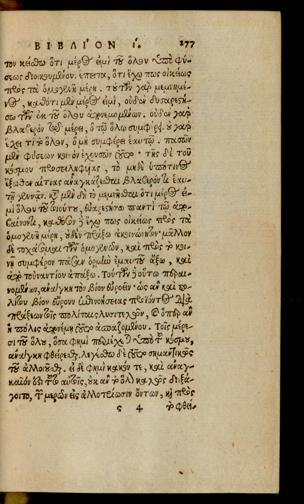 ΒΙΒΛΙΟΝ ί. 177
τον κείσθω ὅτι μέρος εἰμὶ τοῦ ὅλου ὑπὸ φύ-
σεως διοικουμένου. ἔπειτα, ὅτι ἔχω πως οἰκείως
πρὸς τὰ ὁμογενῆ μέρη. τούτων γὰρ μεμνημέ-
νος, καθότι μὲν μέρος εἰμὶ, οὐδενὶ δυσαρεστή-
σω τῶν ἐκ τοῦ ὅλου ἀπονεμομένων. οὐδὲν γὰρ
βλαβερὸν τῷ μέρει, ὃ τῷ ὅλῳ συμφέρει. οὐ γὰρ
ἔχει τὶ τὸ ὅλον, ὃ μὴ συμφέρει ἑαυτῷ. πασῶν
μὲν φύσεων κοινὸν ἐχουσῶν τοῦτο· τῆς δὲ τοῦ
κόσμου προσειληφυίας, τὸ μηδὲ ὑπό τινος
ἔξωθεν αἰτίας ἀναγκάζεσθαι βλαβερόν τι ἑαυ-
τῇ γεννᾶν. κατὰ μὲν δὴ τὸ μεμνῆσθαι ὅτι μέρος εἰ-
μὶ ὅλου τοιούτου, εὐαρεστήσω παντὶ τῷ ἀπο-
βαίνοντι. καθόσον δὲ ἔχω πως οἰκείως πρὸς τὰ
ὁμογενῆ μέρη, οὐδὲν πράξω ἀκοινώνητον· μᾶλλον
δὲ στοχάσομαι τῶν ὁμογενῶν, καὶ πρὸς τὸ κοι-
νῇ συμφέρον πᾶσαν ὁρμὴν ἐμαυτοῦ ἄξω, καὶ
ἀπὸ τοὐναντίου ἀπάξω. Τούτων δὲ οὕτω περαι-
νομένων, ἀνάγκη τὸν βίον εὐροεῖν· ὡς ἂν καὶ πο-
λίτου βίον εὔρουν ἐπινοήσειας προϊόντος διὰ
πράξεων τοῖς πολίταις λυσιτελῶν, καὶ ὅπερ ἂν
ἡ πόλις ἀπονέμῃ τοῦτο ἀσπαζομένου. Τοῖς μέρε-
σι τοῦ ὅλου, ὅσα φημὶ περιέχεται ὑπὸ τοῦ κόσμου,
ἀνάγκη φθείρεσθαι. λεγέσθω δὲ τοῦτο σημαντικῶς
τοῦ ἀλλοιοῦσθαι. εἰ δέ φημι κακόν τε, καὶ ἀναγ-
καῖόν ἐστι τοῦτο αὐτοῖς, οὐκ ἂν τὸ ὅλον καλῶς διεξά-
γοιτο, τῶν μερῶν εἰς ἀλλοτρίωσιν ὄντων, καὶ πρὸς
ς 4 τὸ φθεί-